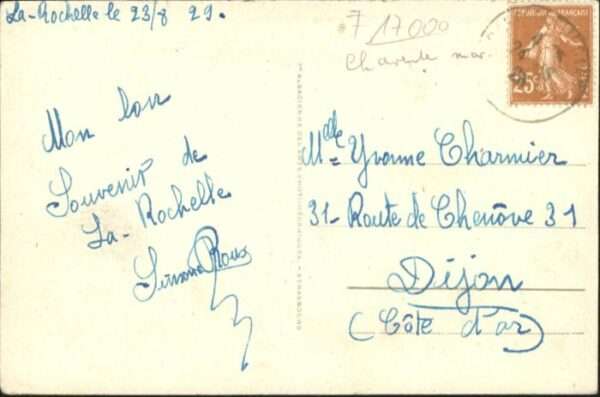 La-Rochelle le 23/8 29.
7 17000
Charente mar.
RÉPUBLIQUE FRANÇAISE
25c
Mon bon
Souvenir de
La-Rochelle
Roux
Mlle Yvonne Charmier
31-Route de Chenôve 31
Dijon
(Côte d'or)